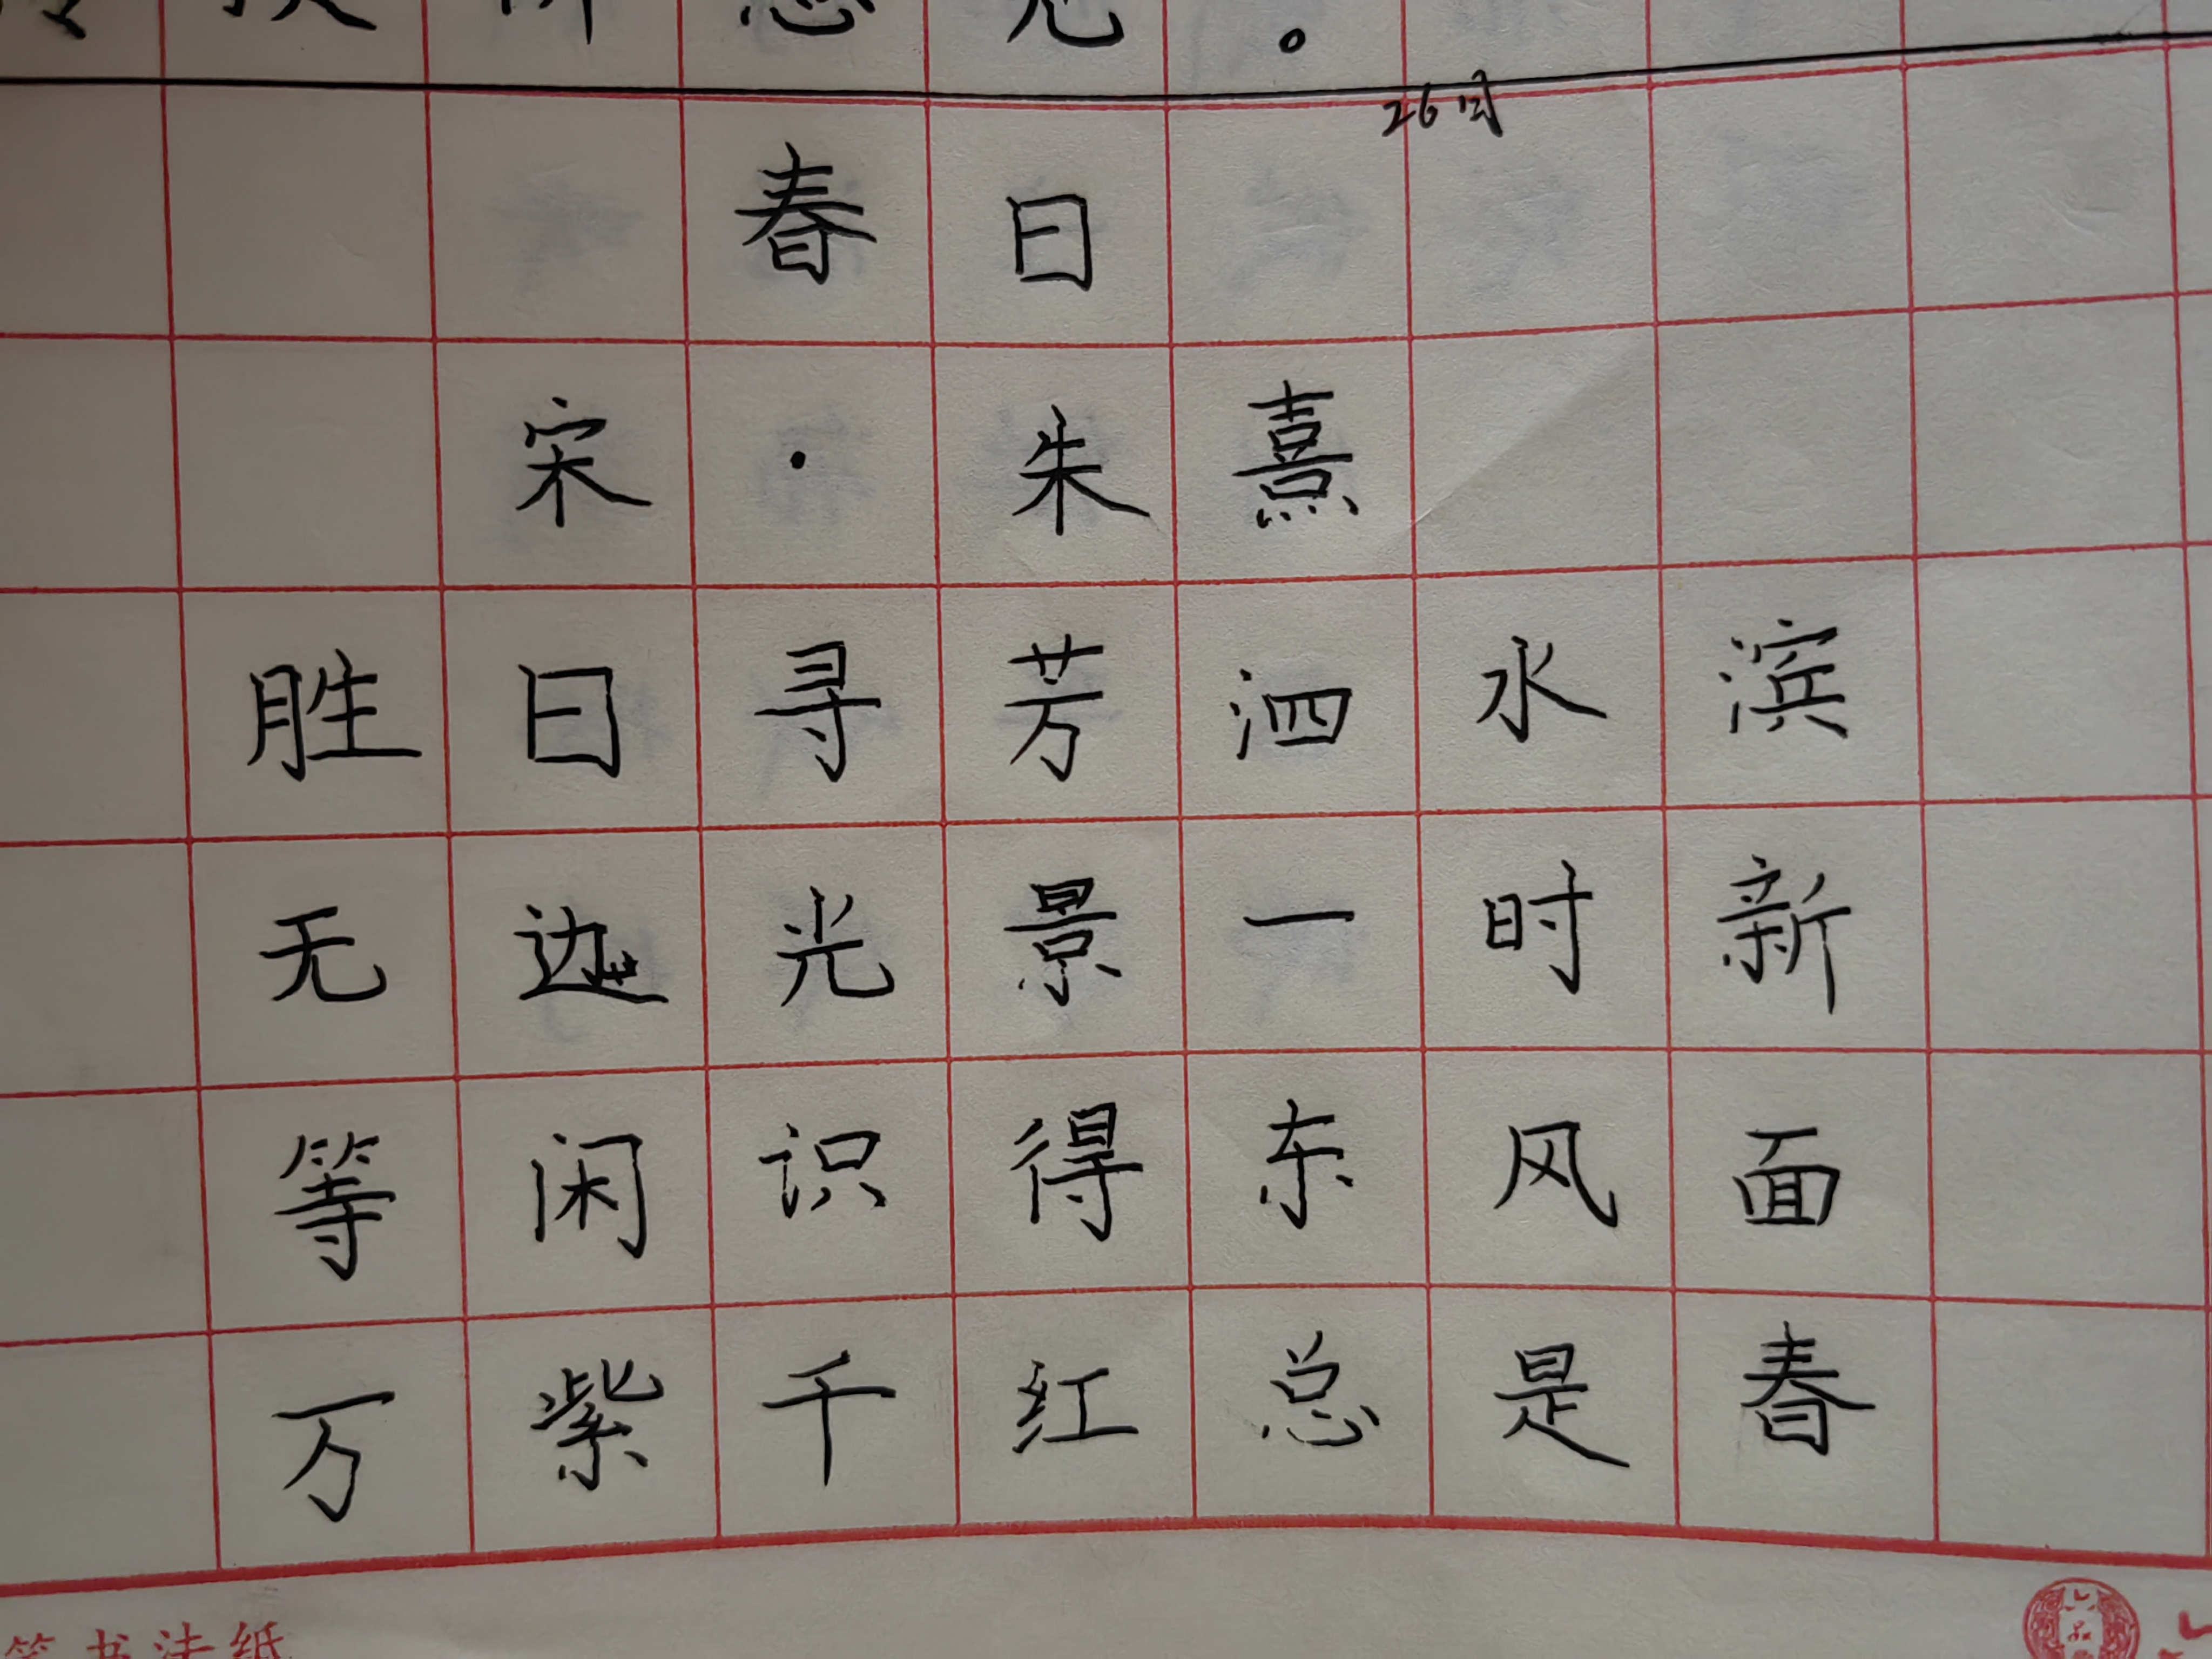 。
26字
春日
宋·朱熹
胜日寻芳泗水滨
无边光景一时新
等闲识得东风面
万紫千红总是春
笔书法纸